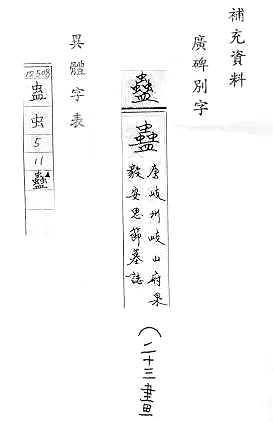 補充資料
廣碑別字
蠱
蠱
唐岐州岐山府果
毅安思節墓誌
(二十三畫
異體字表
蛊
虫
5
11
蠱